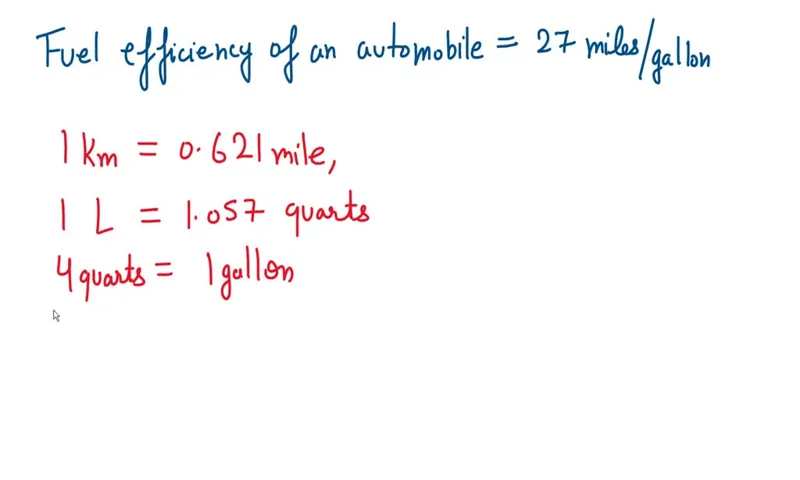 Fuel efficiency of an automobile = 27 miles/gallon
1 km = 0.621 mile,
1 L = 1.057 quarts
4 quarts = 1 gallon